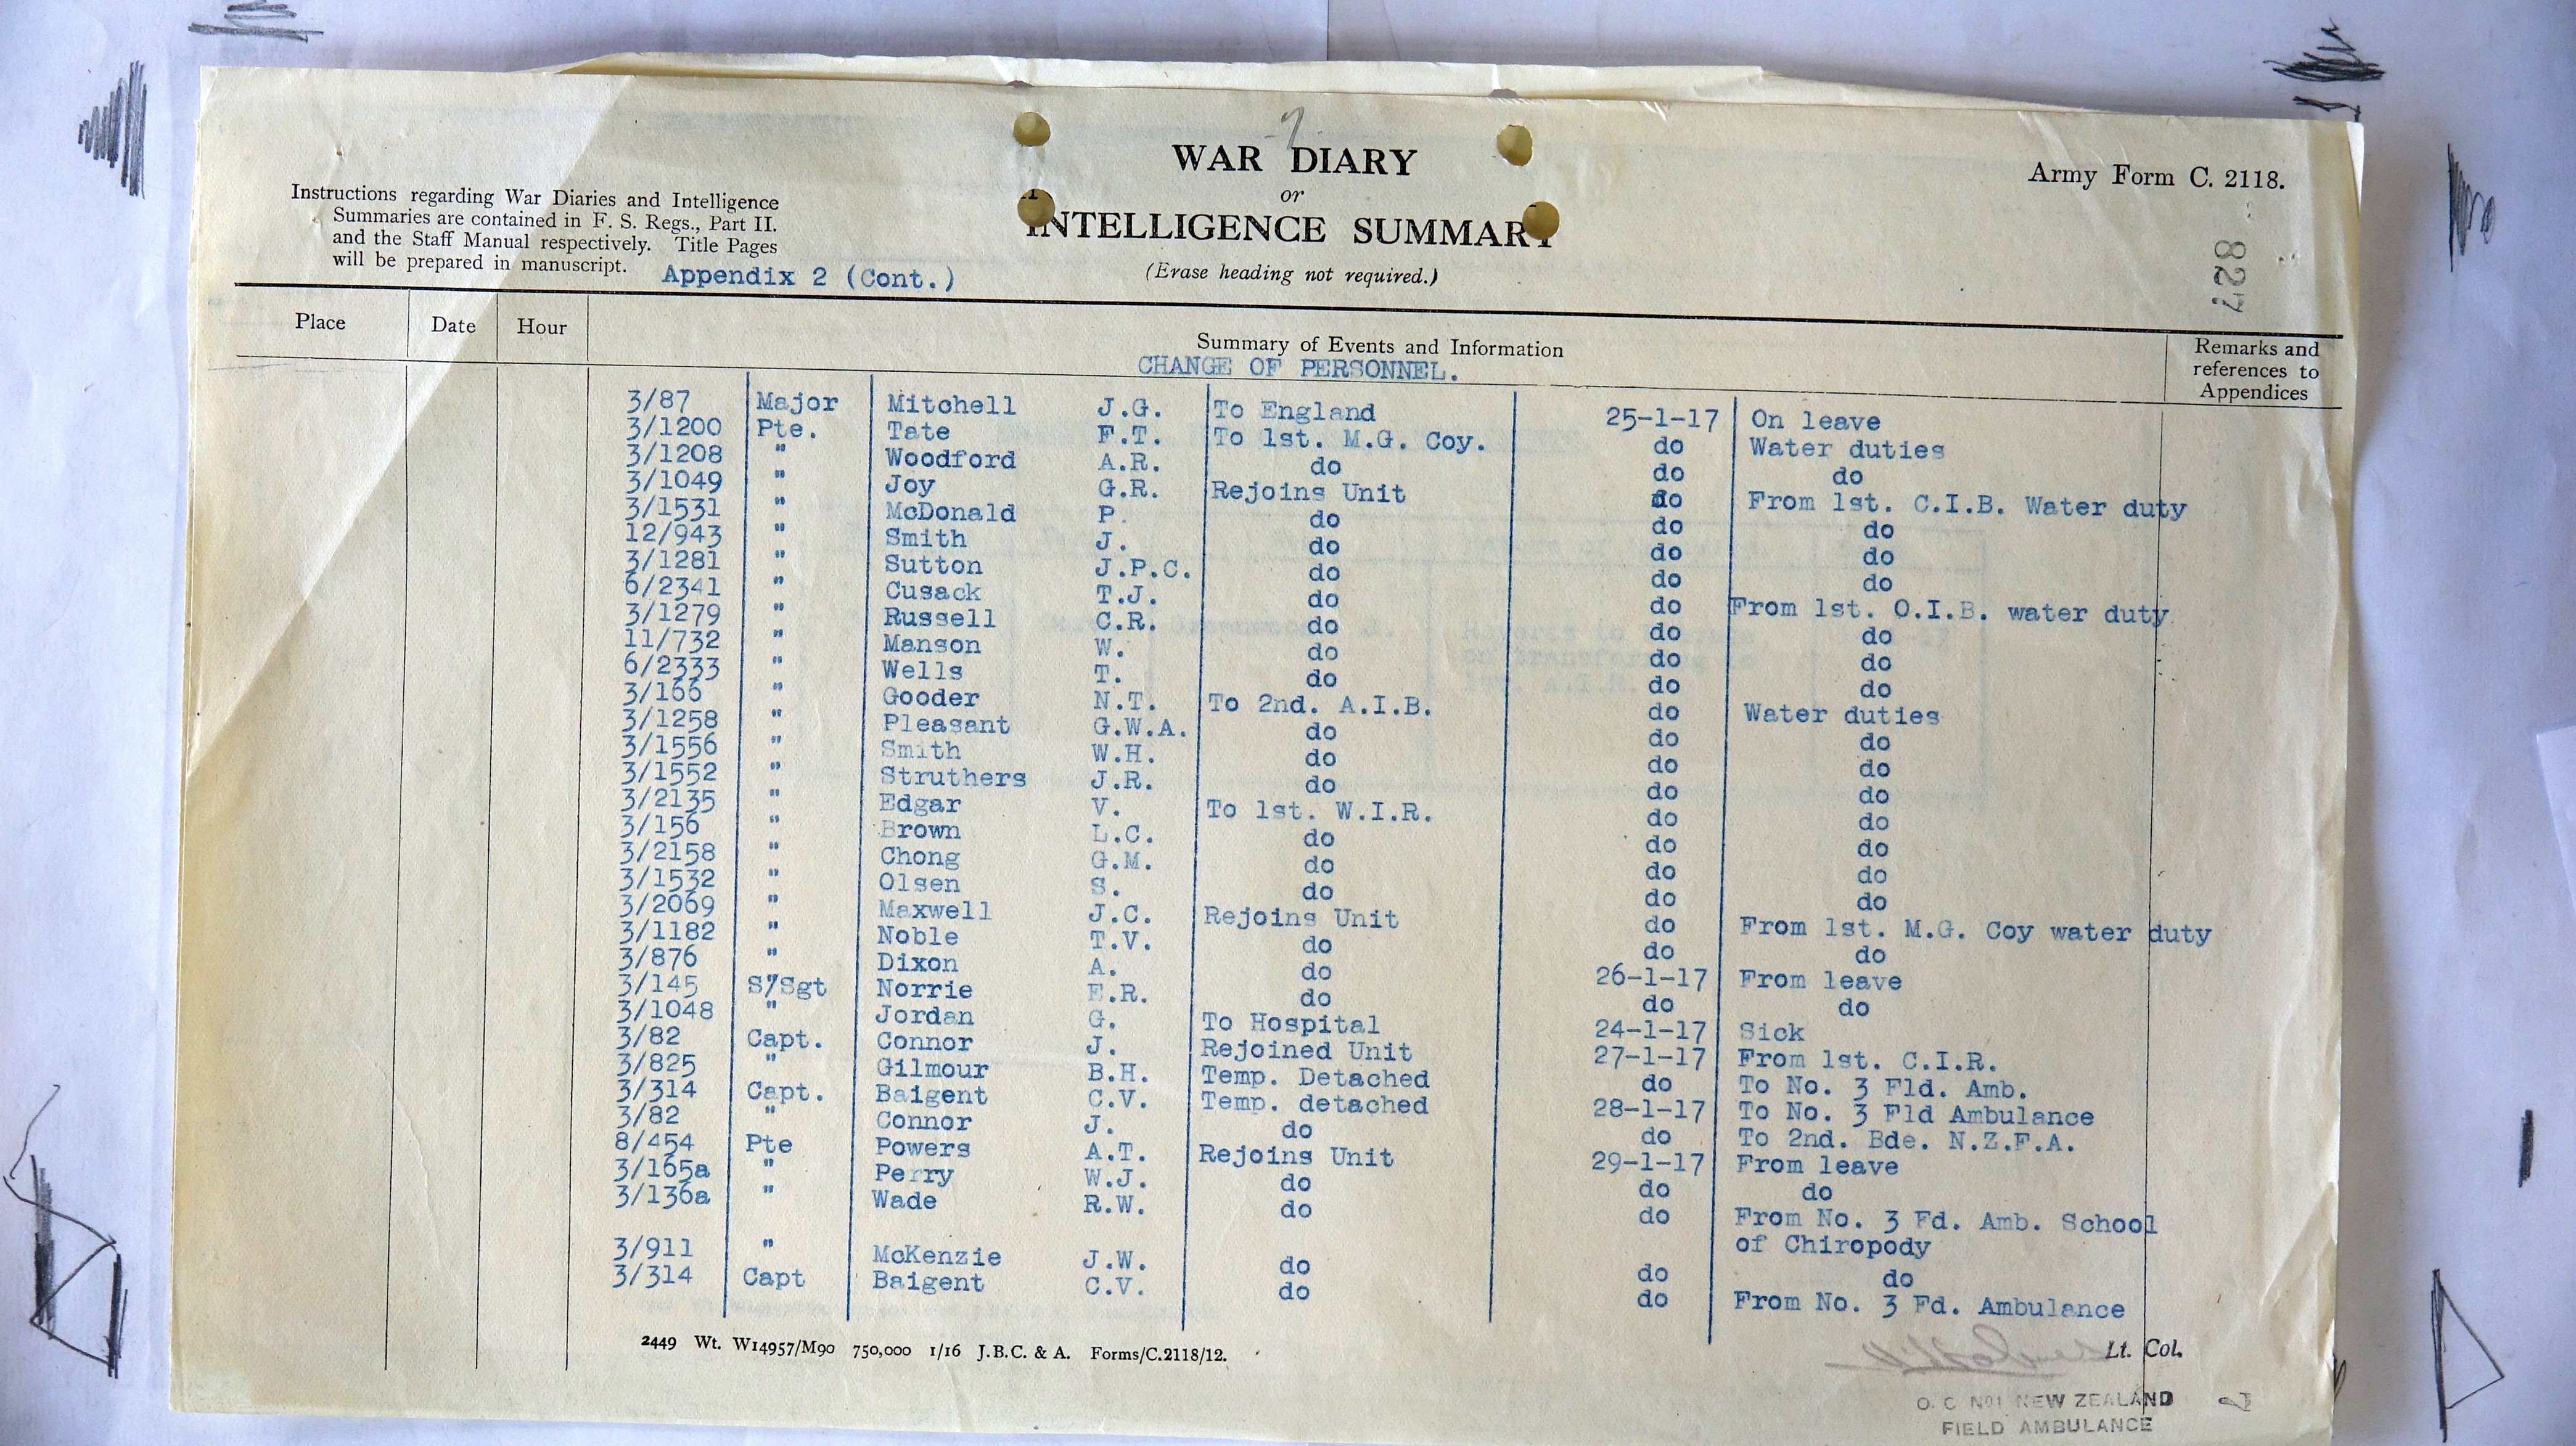 WAR DIARY
or
INTELLIGENCE SUMMARY
(Erase heading not required.)
Army Form C. 2118.
Instructions regarding War Diaries and Intelligence
Summaries are contained in F. S. Regs., Part II.
and the Staff Manual respectively. Title Pages
will be prepared in manuscript.
Appendix 2 (Cont.)
827
Place Date Hour Summary of Events and Information Remarks and references to Appendices
CHANGE OF PERSONNEL.
3/87 Major Mitchell J.G. To England 25-1-17 On leave
3/1200 Pte. Tate F.T. To 1st. M.G. Coy. do Water duties
3/1208 " Woodford A.R. do do do
3/1049 " Joy G.R. Rejoins Unit do From 1st. C.I.B. Water duty
3/1531 " McDonald P. do do do
12/943 " Smith J. do do do
3/1281 " Sutton J.P.C. do do do
6/2341 " Cusack T.J. do do From 1st. O.I.B. water duty
3/1279 " Russell C.R. do do do
11/732 " Manson W. do do do
6/2333 " Wells T. do do do
3/166 " Gooder N.T. To 2nd. A.I.B. do Water duties
3/1258 " Pleasant G.W.A. do do do
3/1556 " Smith W.H. do do do
3/1552 " Struthers J.R. do do do
3/2135 " Edgar V. To 1st. W.I.R. do do
3/156 " Brown L.C. do do do
3/2158 " Chong G.M. do do do
3/1532 " Olsen S. do do do
3/2069 " Maxwell J.C. Rejoins Unit do From 1st. M.G. Coy water duty
3/1182 " Noble T.V. do do do
3/876 " Dixon A. do 26-1-17 From leave
3/145 S/Sgt Norrie E.R. do do do
3/1048 " Jordan G. To Hospital 24-1-17 Sick
3/82 Capt. Connor J. Rejoined Unit 27-1-17 From 1st. C.I.R.
3/825 " Gilmour B.H. Temp. Detached do To No. 3 Fld. Amb.
3/314 Capt. Baigent C.V. Temp. detached 28-1-17 To No. 3 Fld Ambulance
3/82 " Connor J. do do To 2nd. Bde. N.Z.F.A.
8/454 Pte Powers A.T. Rejoins Unit 29-1-17 From leave
3/165a " Perry W.J. do do do
3/136a " Wade R.W. do do From No. 3 Fd. Amb. School
of Chiropody
3/911 " McKenzie J.W. do do do
3/314 Capt Baigent C.V. do do From No. 3 Fd. Ambulance
2449 Wt. W14957/M90 750,000 1/16 J.B.C. & A. Forms/C.2118/12.
Lt. Col.
O. C. No1 NEW ZEALAND
FIELD AMBULANCE